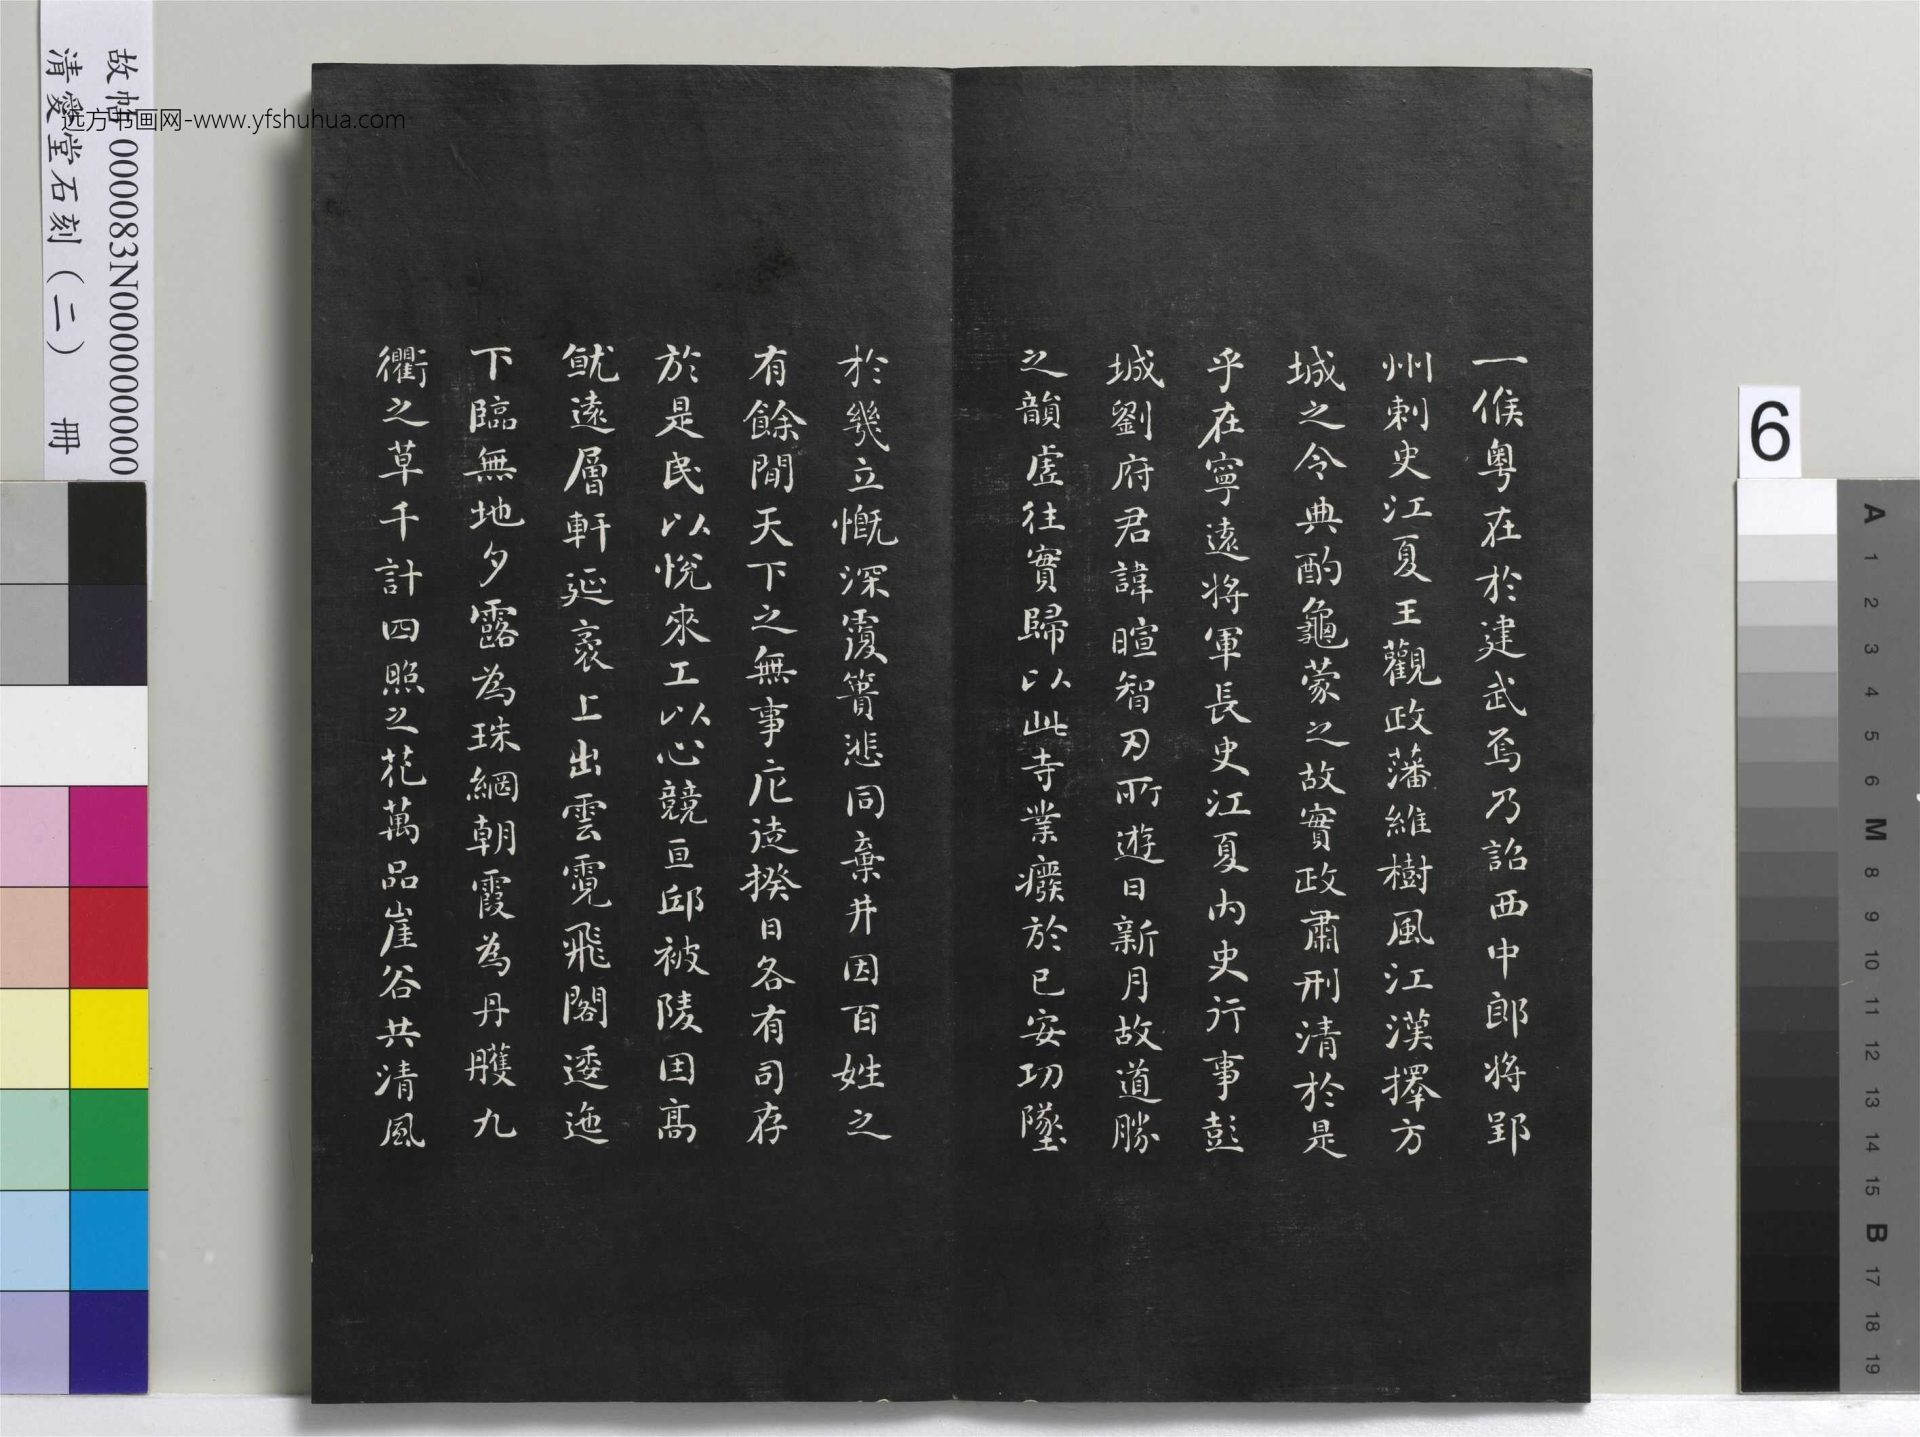 一候粵在於建武焉乃詔西中郎將郢
州刺史江夏王觀政藩維樹風江漢擇方
城之令典酌龜蒙之故實政肅刑清於是
乎在寧遠將軍長史江夏內史行事彭
城劉府君諱暄智刃所遊日新月故道勝
之韻虛往實歸以此寺業癈於已安功墜
於幾立慨深覆簣悲同棄井因百姓之
有餘間天下之無事庀徒揆日各有司存
於是民以悅來工以心競亘邱被陵因高
就遠層軒延袤上出雲霓飛閣逶迤
下臨無地夕露為珠網朝霞為丹雘九
衢之草千計四照之花萬品崖谷共清風
故帖 000083N000000000
清愛堂石刻(二) 冊
远方书画网-www.yfshuhua.com
6
A 1 2 3 4 5 6 M 8 9 10 11 12 13 14 15 B 17 18 19